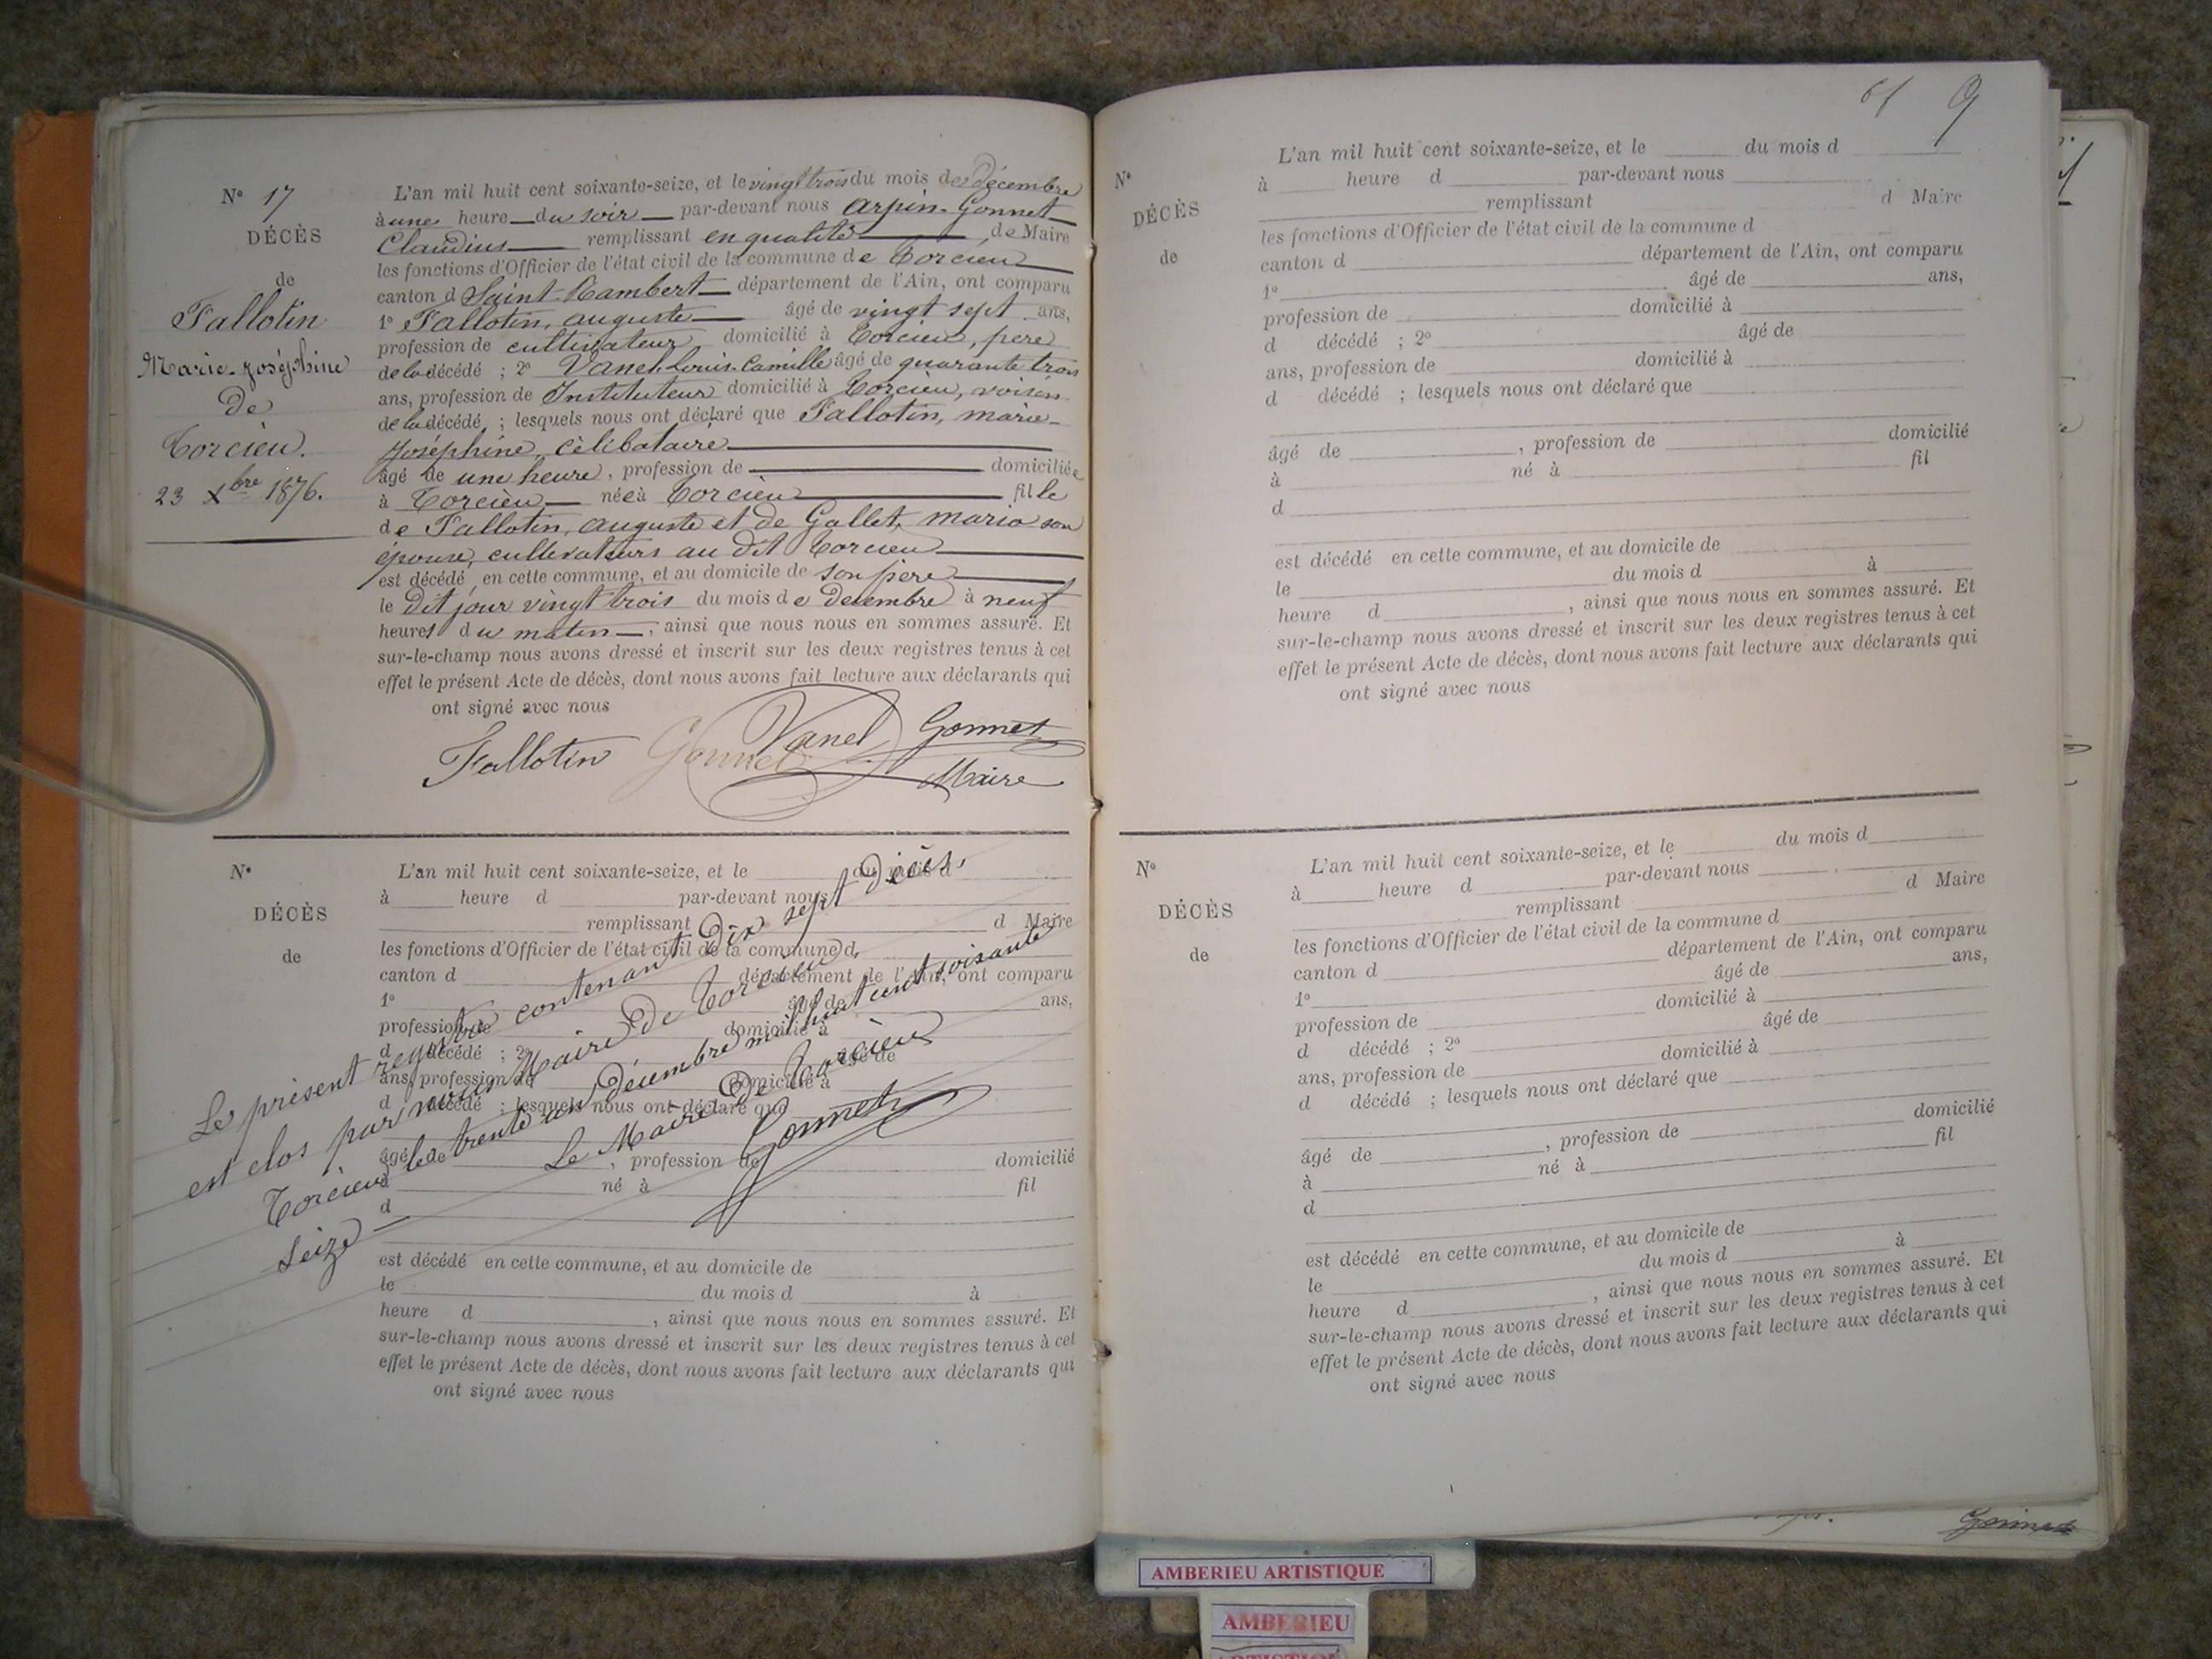 N° 17
DÉCÈS
de
Fallotin
Marie-Joséphine
De
Torcieu.
23 Xbre 1876.
L'an mil huit cent soixante-seize, et le vingt trois du mois de Décembre
à une heure du soir par-devant nous Arpin-Gonnet
Claudius remplissant en qualité de Maire
les fonctions d'Officier de l'état civil de la commune de Torcieu
canton d Saint-Rambert département de l'Ain, ont comparu
1° Fallotin, auguste âgé de vingt sept ans,
profession de cultivateur domicilié à Torcieu, père
de la décédé ; 2° Vanel Louis-Camille âgé de quarante trois
ans, profession de Instituteur domicilié à Torcieu, voisin
de la décédé ; lesquels nous ont déclaré que Fallotin, marie-
Joséphine, célibataire
âgé de une heure, profession de domiciliée
à Torcieu née à Torcieu fille
de Fallotin, auguste et de Gallet, maria son
épouse, cultivateurs au dit Torcieu
est décédé en cette commune, et au domicile de son père
le dit jour vingt trois du mois de Décembre à neuf
heures du matin, ainsi que nous nous en sommes assuré. Et
sur-le-champ nous avons dressé et inscrit sur les deux registres tenus à cet
effet le présent Acte de décès, dont nous avons fait lecture aux déclarants qui
ont signé avec nous
Fallotin Gonnet Vanel Gonnet
Maire
N°
DÉCÈS
de
L'an mil huit cent soixante-seize, et le du mois d
à heure d par-devant nous
remplissant d Maire
les fonctions d'Officier de l'état civil de la commune d
canton d département de l'Ain, ont comparu
1° âgé de ans,
profession de domicilié à
d décédé ; 2° âgé de
ans, profession de domicilié à
d décédé ; lesquels nous ont déclaré que
âgé de , profession de domicilié
à né à fil
d
est décédé en cette commune, et au domicile de
le du mois d à
heure d , ainsi que nous nous en sommes assuré. Et
sur-le-champ nous avons dressé et inscrit sur les deux registres tenus à cet
effet le présent Acte de décès, dont nous avons fait lecture aux déclarants qui
ont signé avec nous
Le présent registre contenant Dix sept Décès,
est clos par nous Maire de Torcieu,
Torcieu le trente un Décembre mil huit cent soixante
Seize
Le Maire De Torcieu
Gonnet
9
N°
DÉCÈS
de
L'an mil huit cent soixante-seize, et le du mois d
à heure d par-devant nous
remplissant d Maire
les fonctions d'Officier de l'état civil de la commune d
canton d département de l'Ain, ont comparu
1° âgé de ans,
profession de domicilié à
d décédé ; 2° âgé de
ans, profession de domicilié à
d décédé ; lesquels nous ont déclaré que
âgé de , profession de domicilié
à né à fil
d
est décédé en cette commune, et au domicile de
le du mois d à
heure d , ainsi que nous nous en sommes assuré. Et
sur-le-champ nous avons dressé et inscrit sur les deux registres tenus à cet
effet le présent Acte de décès, dont nous avons fait lecture aux déclarants qui
ont signé avec nous
N°
DÉCÈS
de
L'an mil huit cent soixante-seize, et le du mois d
à heure d par-devant nous
remplissant d Maire
les fonctions d'Officier de l'état civil de la commune d
canton d département de l'Ain, ont comparu
1° âgé de ans,
profession de domicilié à
d décédé ; 2° âgé de
ans, profession de domicilié à
d décédé ; lesquels nous ont déclaré que
âgé de , profession de domicilié
à né à fil
d
est décédé en cette commune, et au domicile de
le du mois d à
heure d , ainsi que nous nous en sommes assuré. Et
sur-le-champ nous avons dressé et inscrit sur les deux registres tenus à cet
effet le présent Acte de décès, dont nous avons fait lecture aux déclarants qui
ont signé avec nous
Gonnet
AMBERIEU ARTISTIQUE
AMBERIEU
ARTISTIQUE